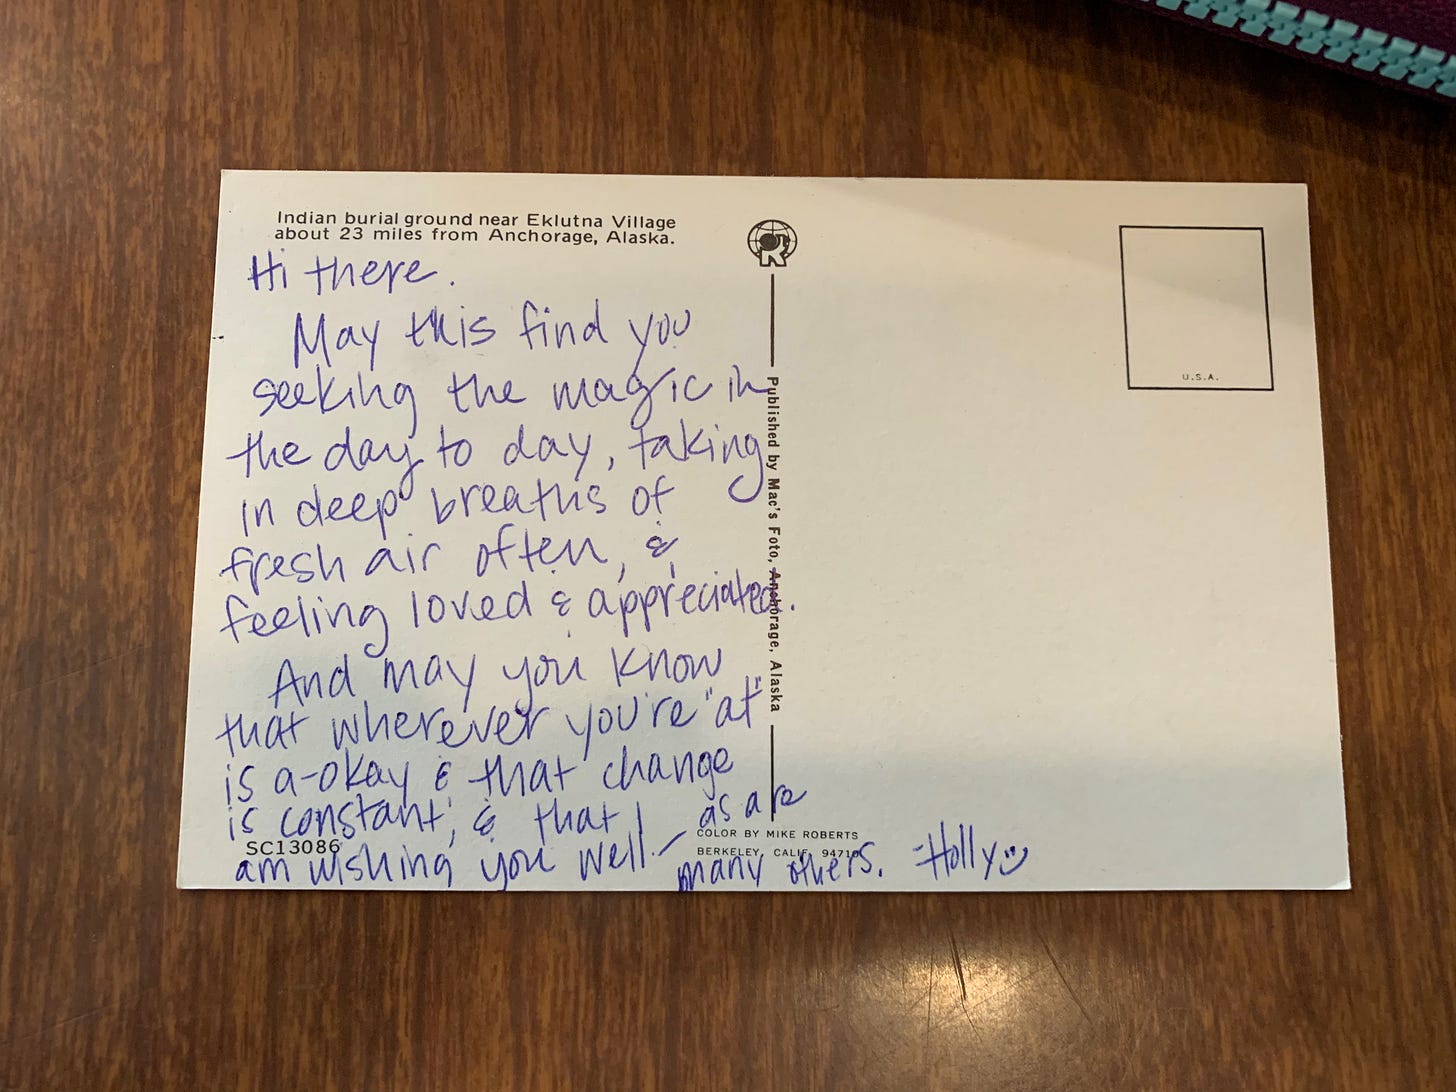 Indian burial ground near Eklutna Village
about 23 miles from Anchorage, Alaska.
Hi there.
May this find you
seeking the magic in
the day to day, taking
in deep breaths of
fresh air often, &
feeling loved & appreciated.
And may you know
that wherever you're "at"
is a-okay & that change
is constant, & that I
am wishing you well - as are
many others. -Holly
SC13086
Published by Mac's Foto, Anchorage, Alaska
COLOR BY MIKE ROBERTS
BERKELEY, CALIF. 94710
U.S.A.